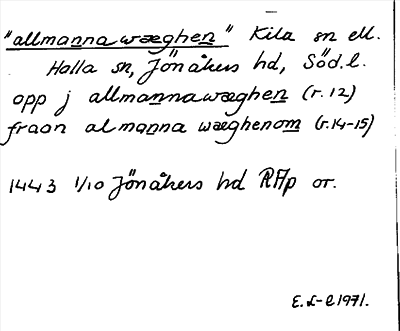 "allmanna wæghen" Kila sn ell.
Halla sn, Jönåkers hd, Söd.l.
opp j allmannawæghen (r.12)
fraan almanna wæghenom (r.14-15)
1443 1/10 Jönåkers hd RAp or.
E. L-e 1971.